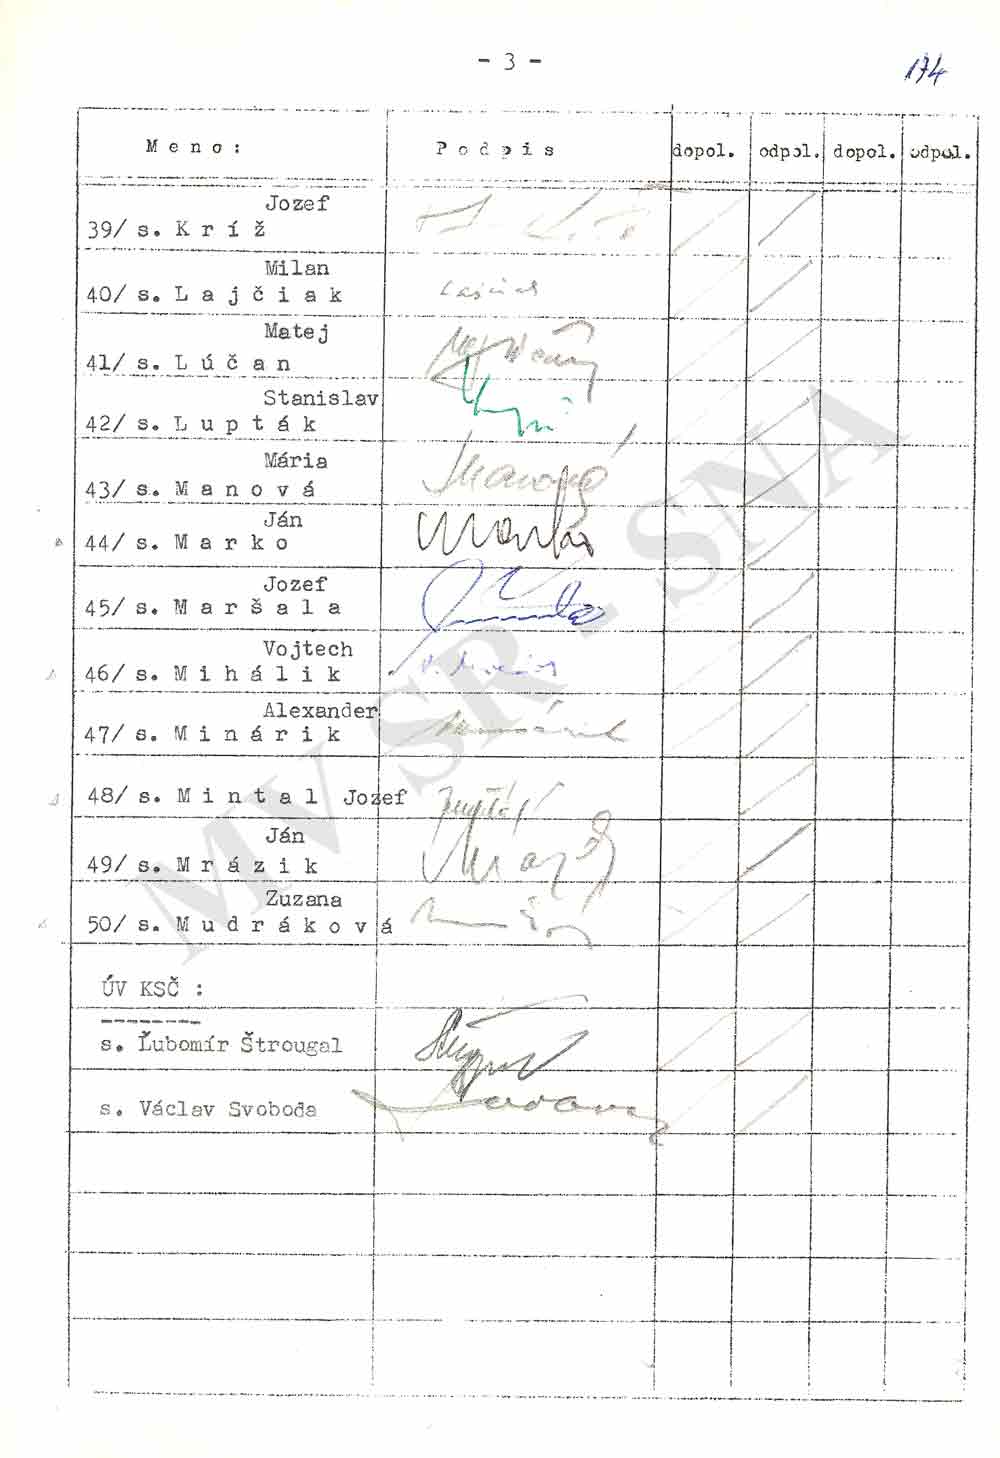 - 3 -
174
M e n o :
P o d p i s
dopol.
odpol.
dopol.
odpol.
Jozef
39/ s. K r í ž
Milan
40/ s. L a j č i a k
Lajčiak
Matej
41/ s. L ú č a n
Stanislav
42/ s. L u p t á k
Mária
43/ s. M a n o v á
Manová
Ján
44/ s. M a r k o
Marko
Jozef
45/ s. M a r š a l a
Vojtech
46/ s. M i h á l i k
Alexander
47/ s. M i n á r i k
48/ s. M i n t a l Jozef
Ján
49/ s. M r á z i k
Zuzana
50/ s. M u d r á k o v á
ÚV KSČ :
s. Ľubomír Štrougal
s. Václav Svoboda
MV SR - SNA